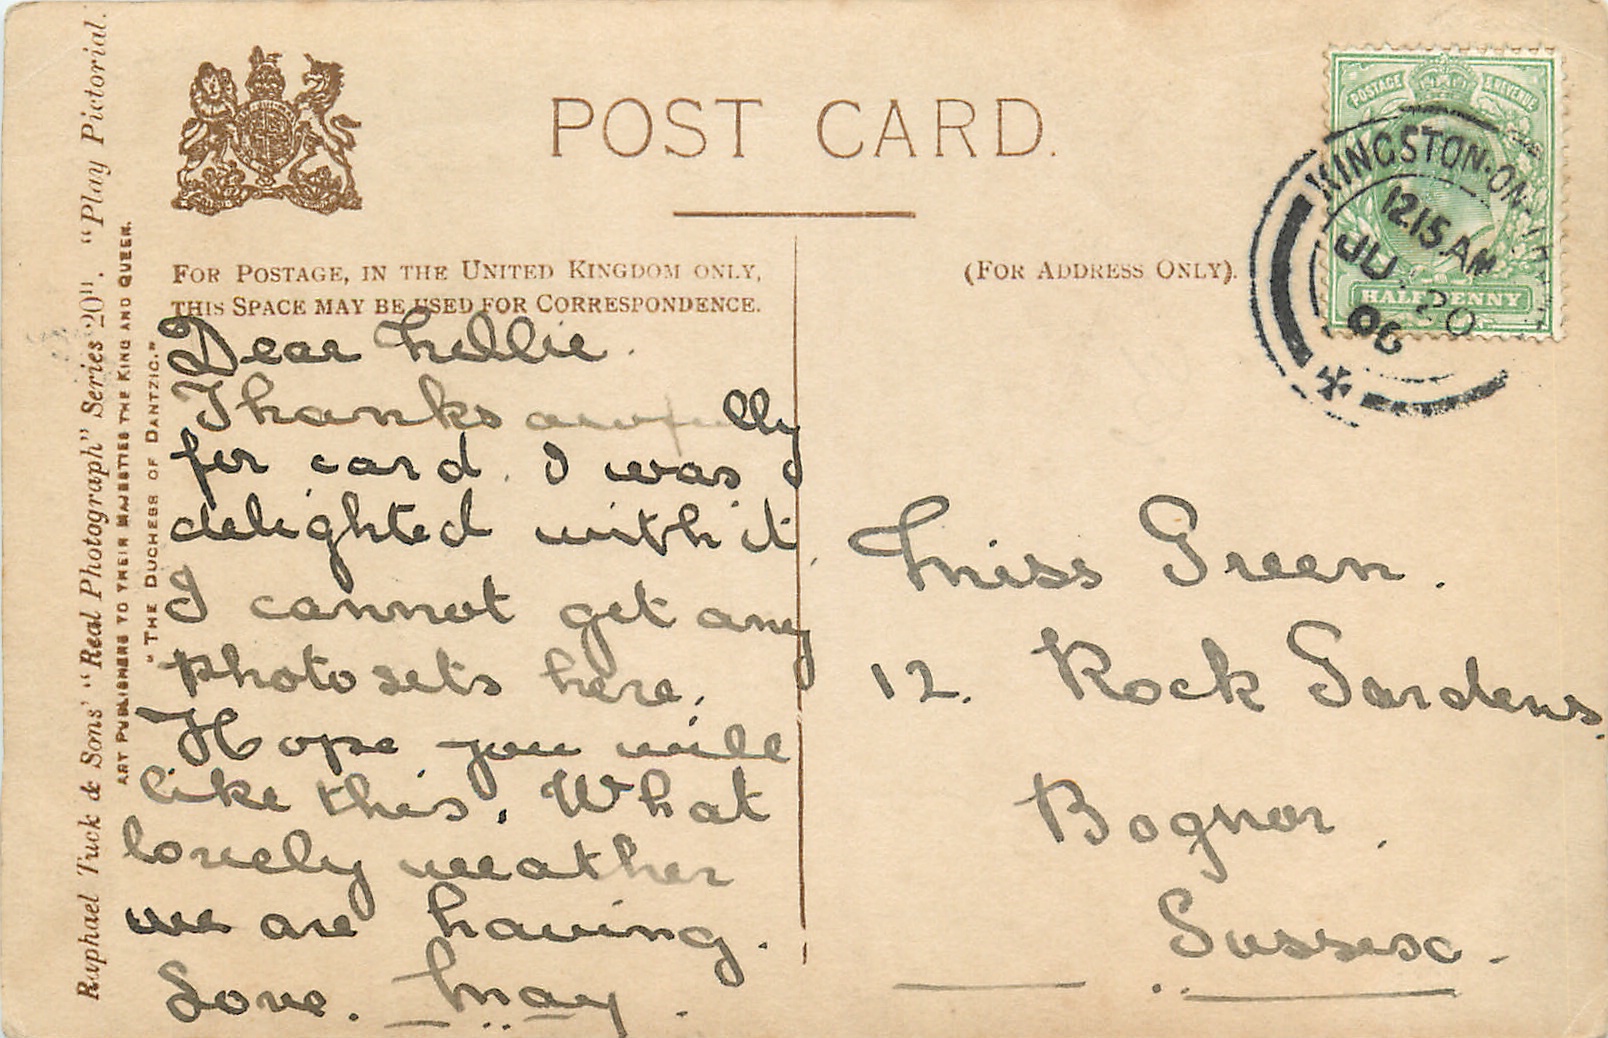 Raphael Tuck & Sons' "Real Photograph" Series 20". "Play Pictorial.
ART PUBLISHERS TO THEIR MAJESTIES THE KING AND QUEEN.
"THE DUCHESS OF DANTZIC."
POST CARD.
FOR POSTAGE, IN THE UNITED KINGDOM ONLY,
THIS SPACE MAY BE USED FOR CORRESPONDENCE.
(FOR ADDRESS ONLY).
POSTAGE & REVENUE
HALFPENNY
KINGSTON-ON-
12.15 AM
JU 20
06
Dear Nellie.
Thanks awfully
for card. I was
delighted with it.
I cannot get any
photo sets here.
Hope you will
like this. What
lovely weather
we are having.
Love. May.
Miss Green.
12. Rock Gardens.
Bognor.
Sussex.